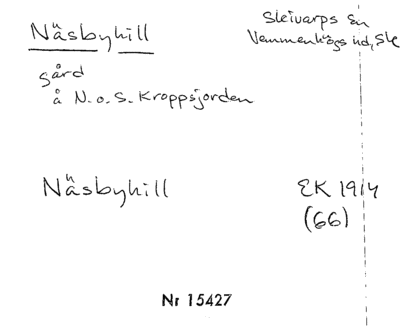 Näsbyhill
Sleivarps Sn
Vemmenhögs hd, Skå
gård
å N. o. S. Kroppsjorden
Näsbyhill
EK 1914
(66)
Nr 15427